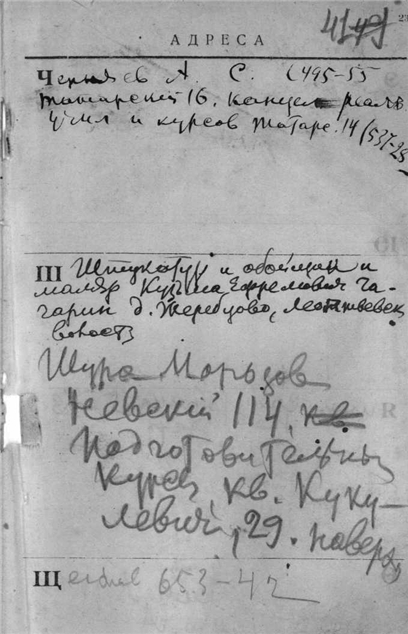 23
АДРЕСА
Черняев А. С. (495-55
Татарский 16. канцел реальн
учил и курсов Татарс. 14 (537-25
Ш Штукатур и обойщик и
маляр Кузьма Ефремович Га-
гарин д. Жеребцово,
волость
Шура Марьзов
Невский 114, кв
Подготовительны
Курсы, кв. Куку-
левич, 29. наверх
Щ 653-42